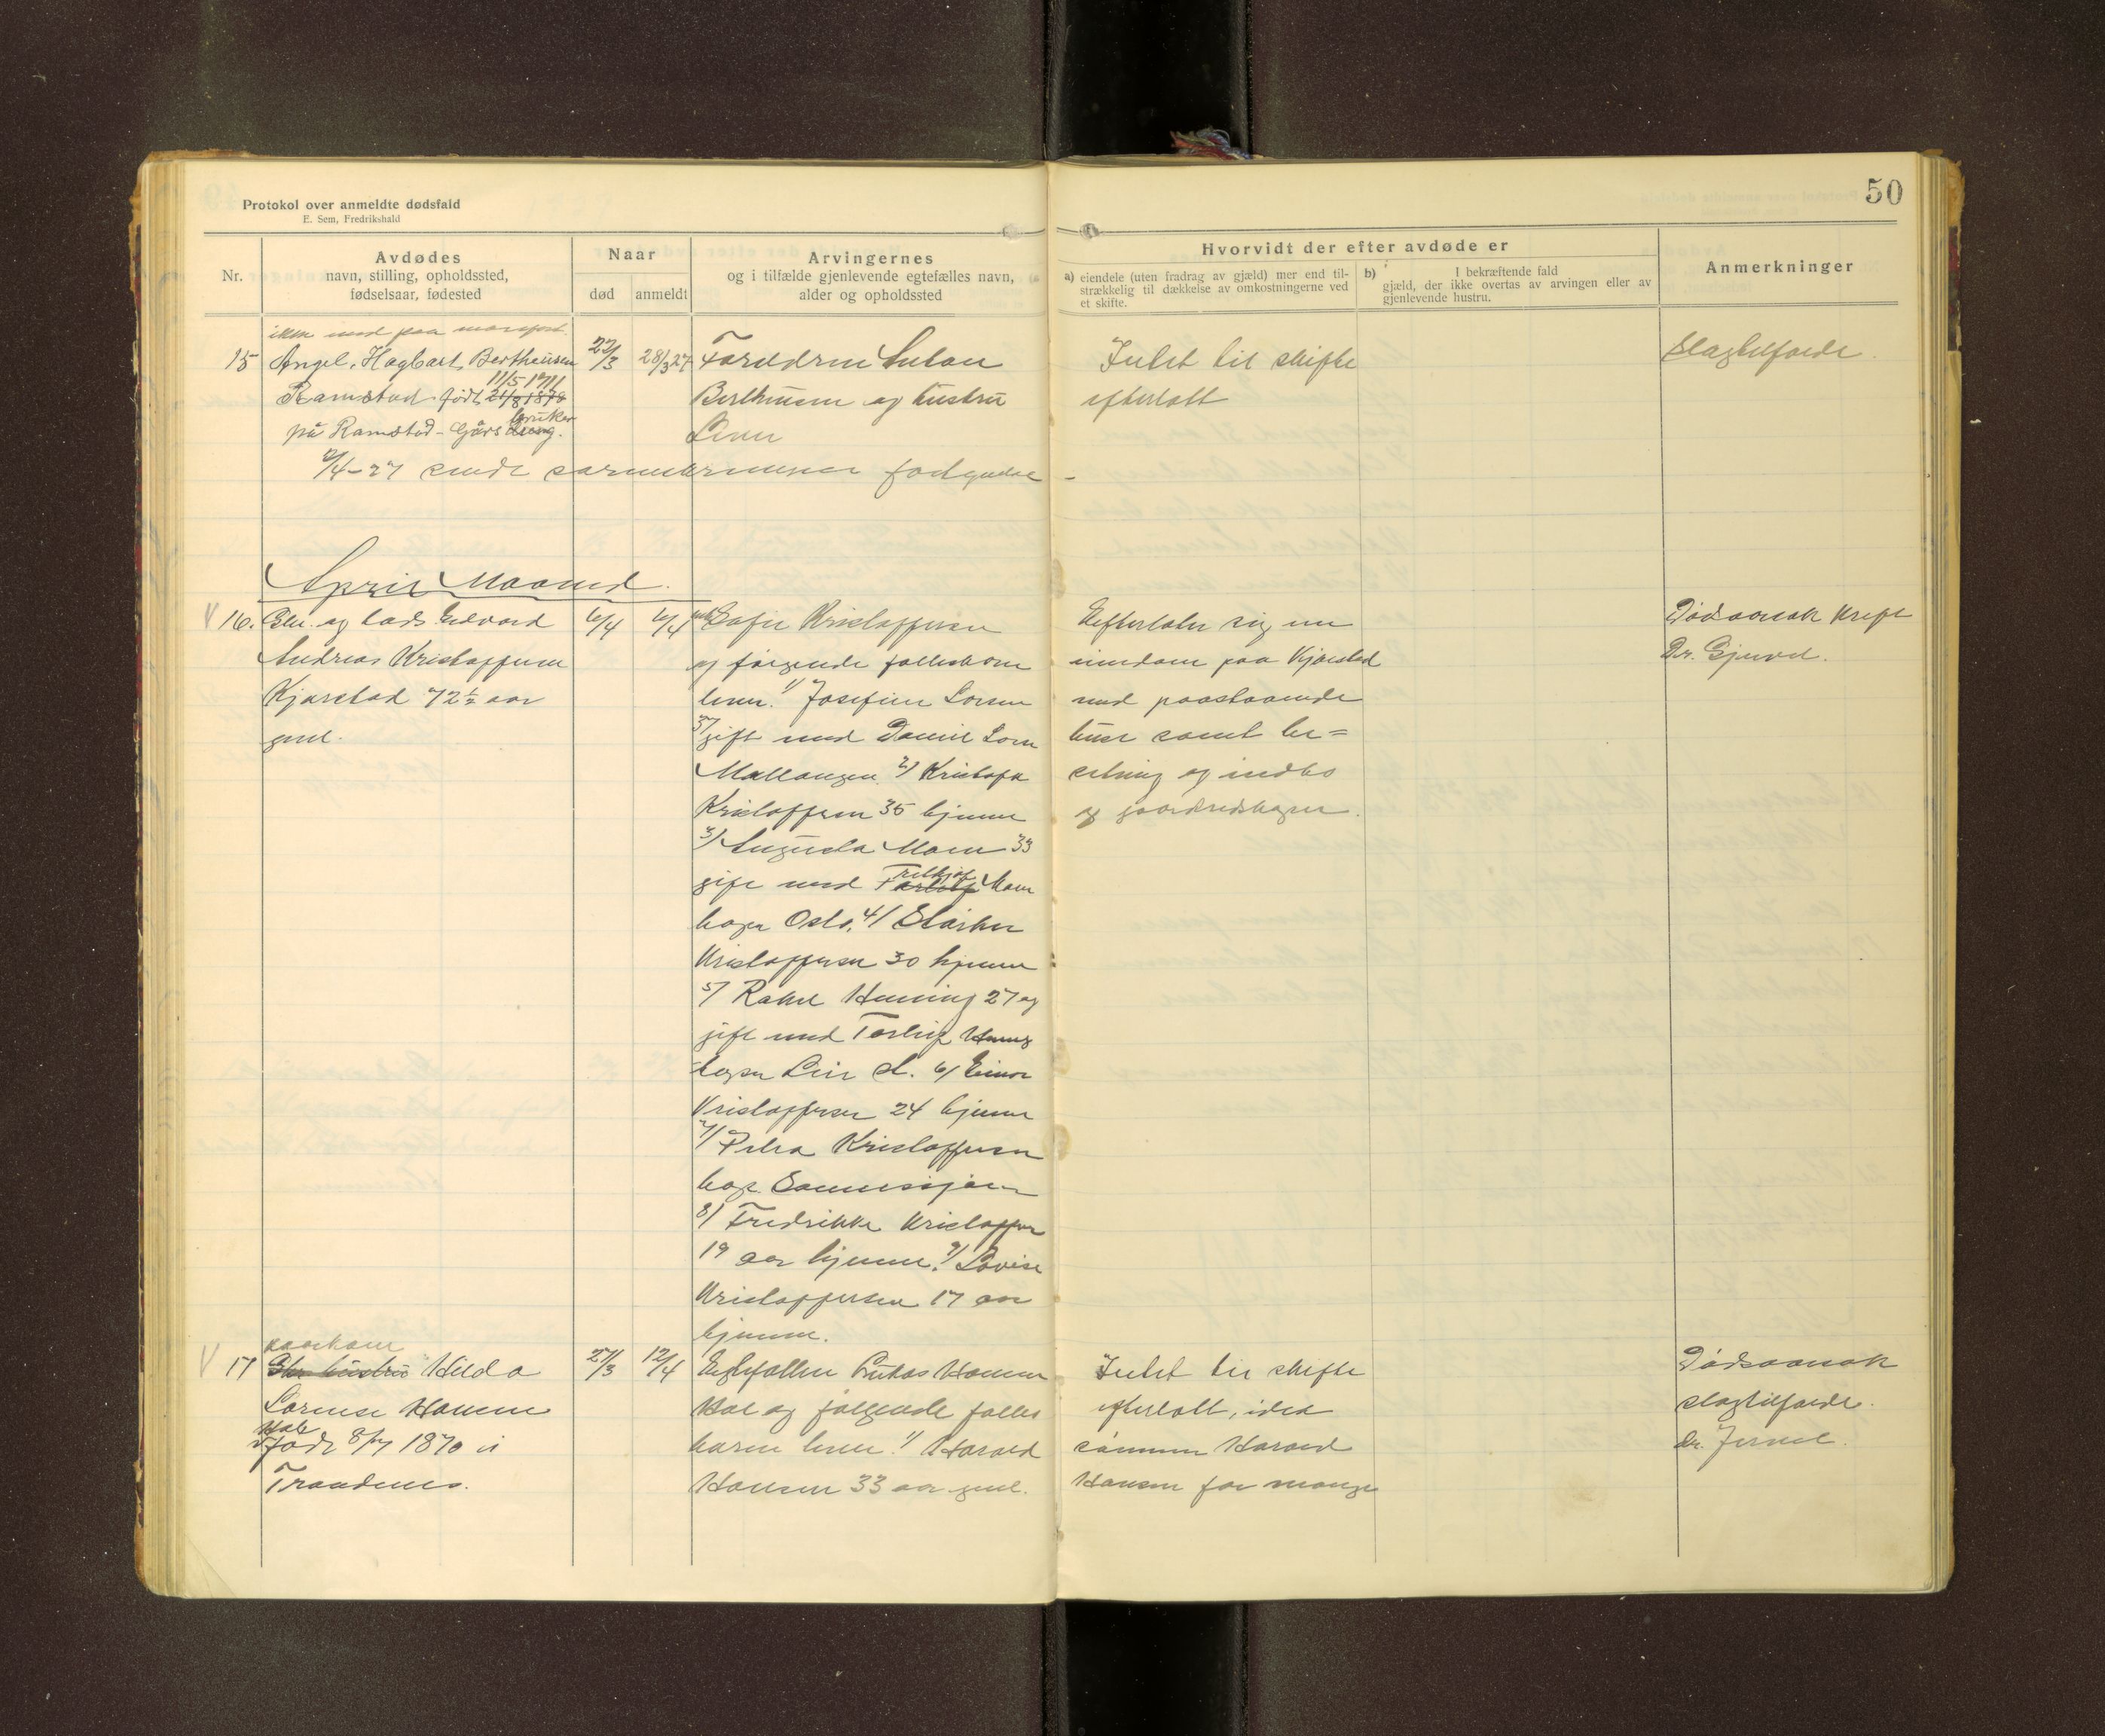 50
Protokol over anmeldte dødsfald
E. Sem, Fredrikshald
Nr.
Avdødes
navn, stilling, opholdssted,
fødselsaar, fødested
Naar
død
anmeldt
Arvingernes
og i tilfælde gjenlevende egtefælles navn,
alder og opholdssted
Hvorvidt der efter avdøde er
a) eiendele (uten fradrag av gjæld) mer end til-
strækkelig til dækkelse av omkostningerne ved
et skifte.
b) I bekræftende fald
gjæld, der ikke overtas av arvingen eller av
gjenlevende hustru.
Anmerkninger
ikke med paa
15 Angel. Hagbart Bertheusen
11/5 1911
Ramstad født 21/8 1878
bruker
på Ramstad - Gårs
22/3
28/3 27
Forældrene Anton
Bertheusen og hustru
Intet til skifte
efterlatt
Slagtilfælde.
2/4-27 sendt
April Maaned
16. Gbr. og lods Edvard
Andreas Kristoffersen
Kjærstad 72½ aar
gml.
6/4
6/4
Enke Sofie Kristoffersen
og følgende fællesbarn
lever. 1/ Josefine Lorsen
37 gift med Daniel Lorsen
Mallangen 2/ Kristofer
Kristoffersen 35 hjemme
3/ Augusta Moen 33
gift med Fridtjof Moen
bager Oslo, 4/ Starker
Kristoffersen 30 hjemme
5/ Rakel Henning 27 og
gift med Torleif Henning
6/ Einar
Kristoffersen 24 hjemme
7/ Petra Kristoffersen
8/ Fredrikke Kristoffersen
19 aar hjemme. 9/ Lovise
Kristoffersen 17 aar
hjemme.
Efterlater sig en
eiendom paa Kjærstad
med paastaaende
huse samt be=
setning og indbo
og gaardredskaper.
Dødsaarsak Kreft
Dr. Gjervel.
17 Gbr hustru Hilda
Lorense Hansen
Hals
født 8/7 1870 i
Trondenes.
27/3
12/4
Egtefællen Lukas Hansen
Hals og følgende fælles
barn lever. 1/ Harald
Hansen 33 aar gml.
Intet til skifte
efterlatt, idet
sønnen Harald
Hansen for mange
Dødsaarsak
slagtilfælde.